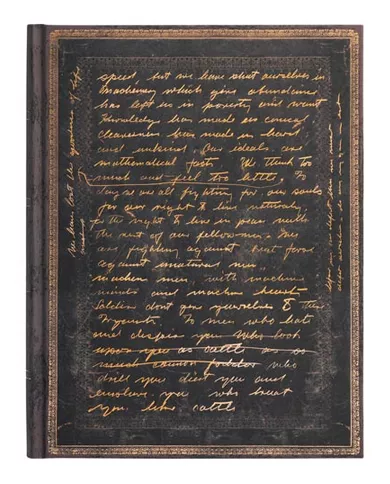 speed, but we have shut ourselves in
Machinery which gives abundance
has left us in poverty and want
Knowledge has made us cynical
cleverness has made us hard
and unkind. Our ideals are
mathematical fast. We think too
much and feel too little. To
day we are all fighting for our souls
for our right to live naturally
for the right to live in peace with
the rest of our fellow men. We
are fighting against
against unatural men
machine men, with machine
minds and machine hearts
Soldiers dont give yourselves to this
To men who hate
and despise you Who look
upon you as cattle as
cannon fodder who
drill you diet you and
enslave you who treat
you like cattle
We have lost the goodness of life